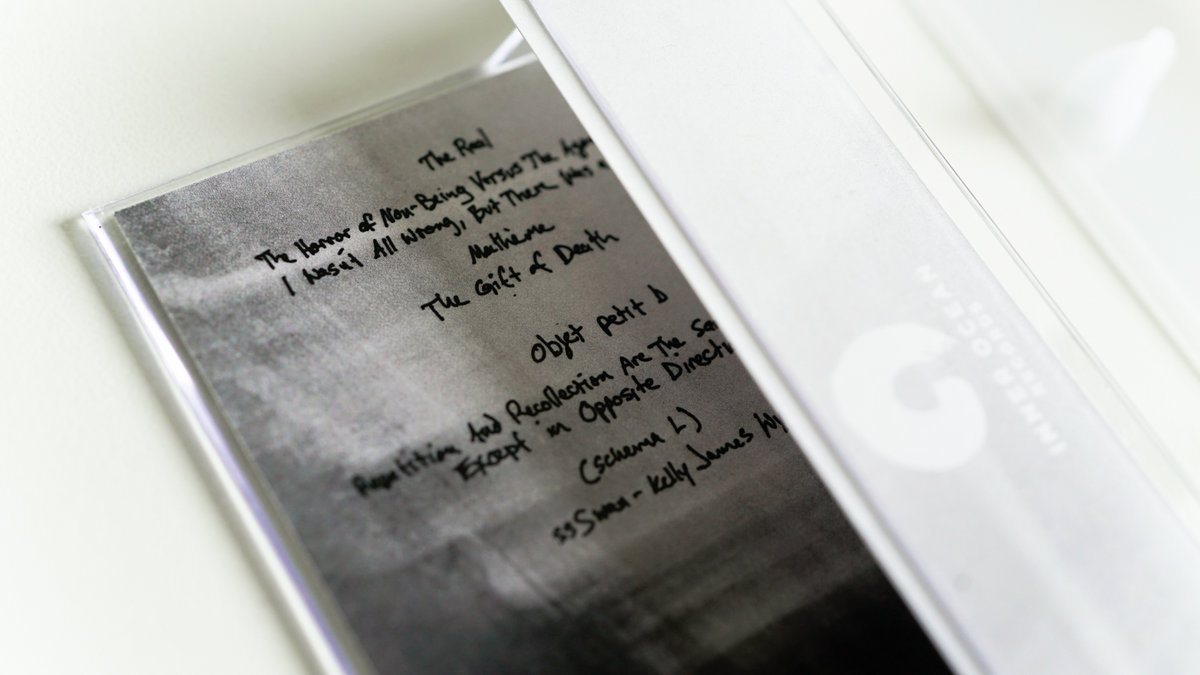 The Real
The Horror of Non-Being Versus The
I Wasn't All Wrong, But There Was
Matheme
The Gift of Death
Objet petit b
Repetition And Recollection Are The
Except in Opposite
(schema L)
Swan - Kelly James
INNER OCEAN
RECORDS